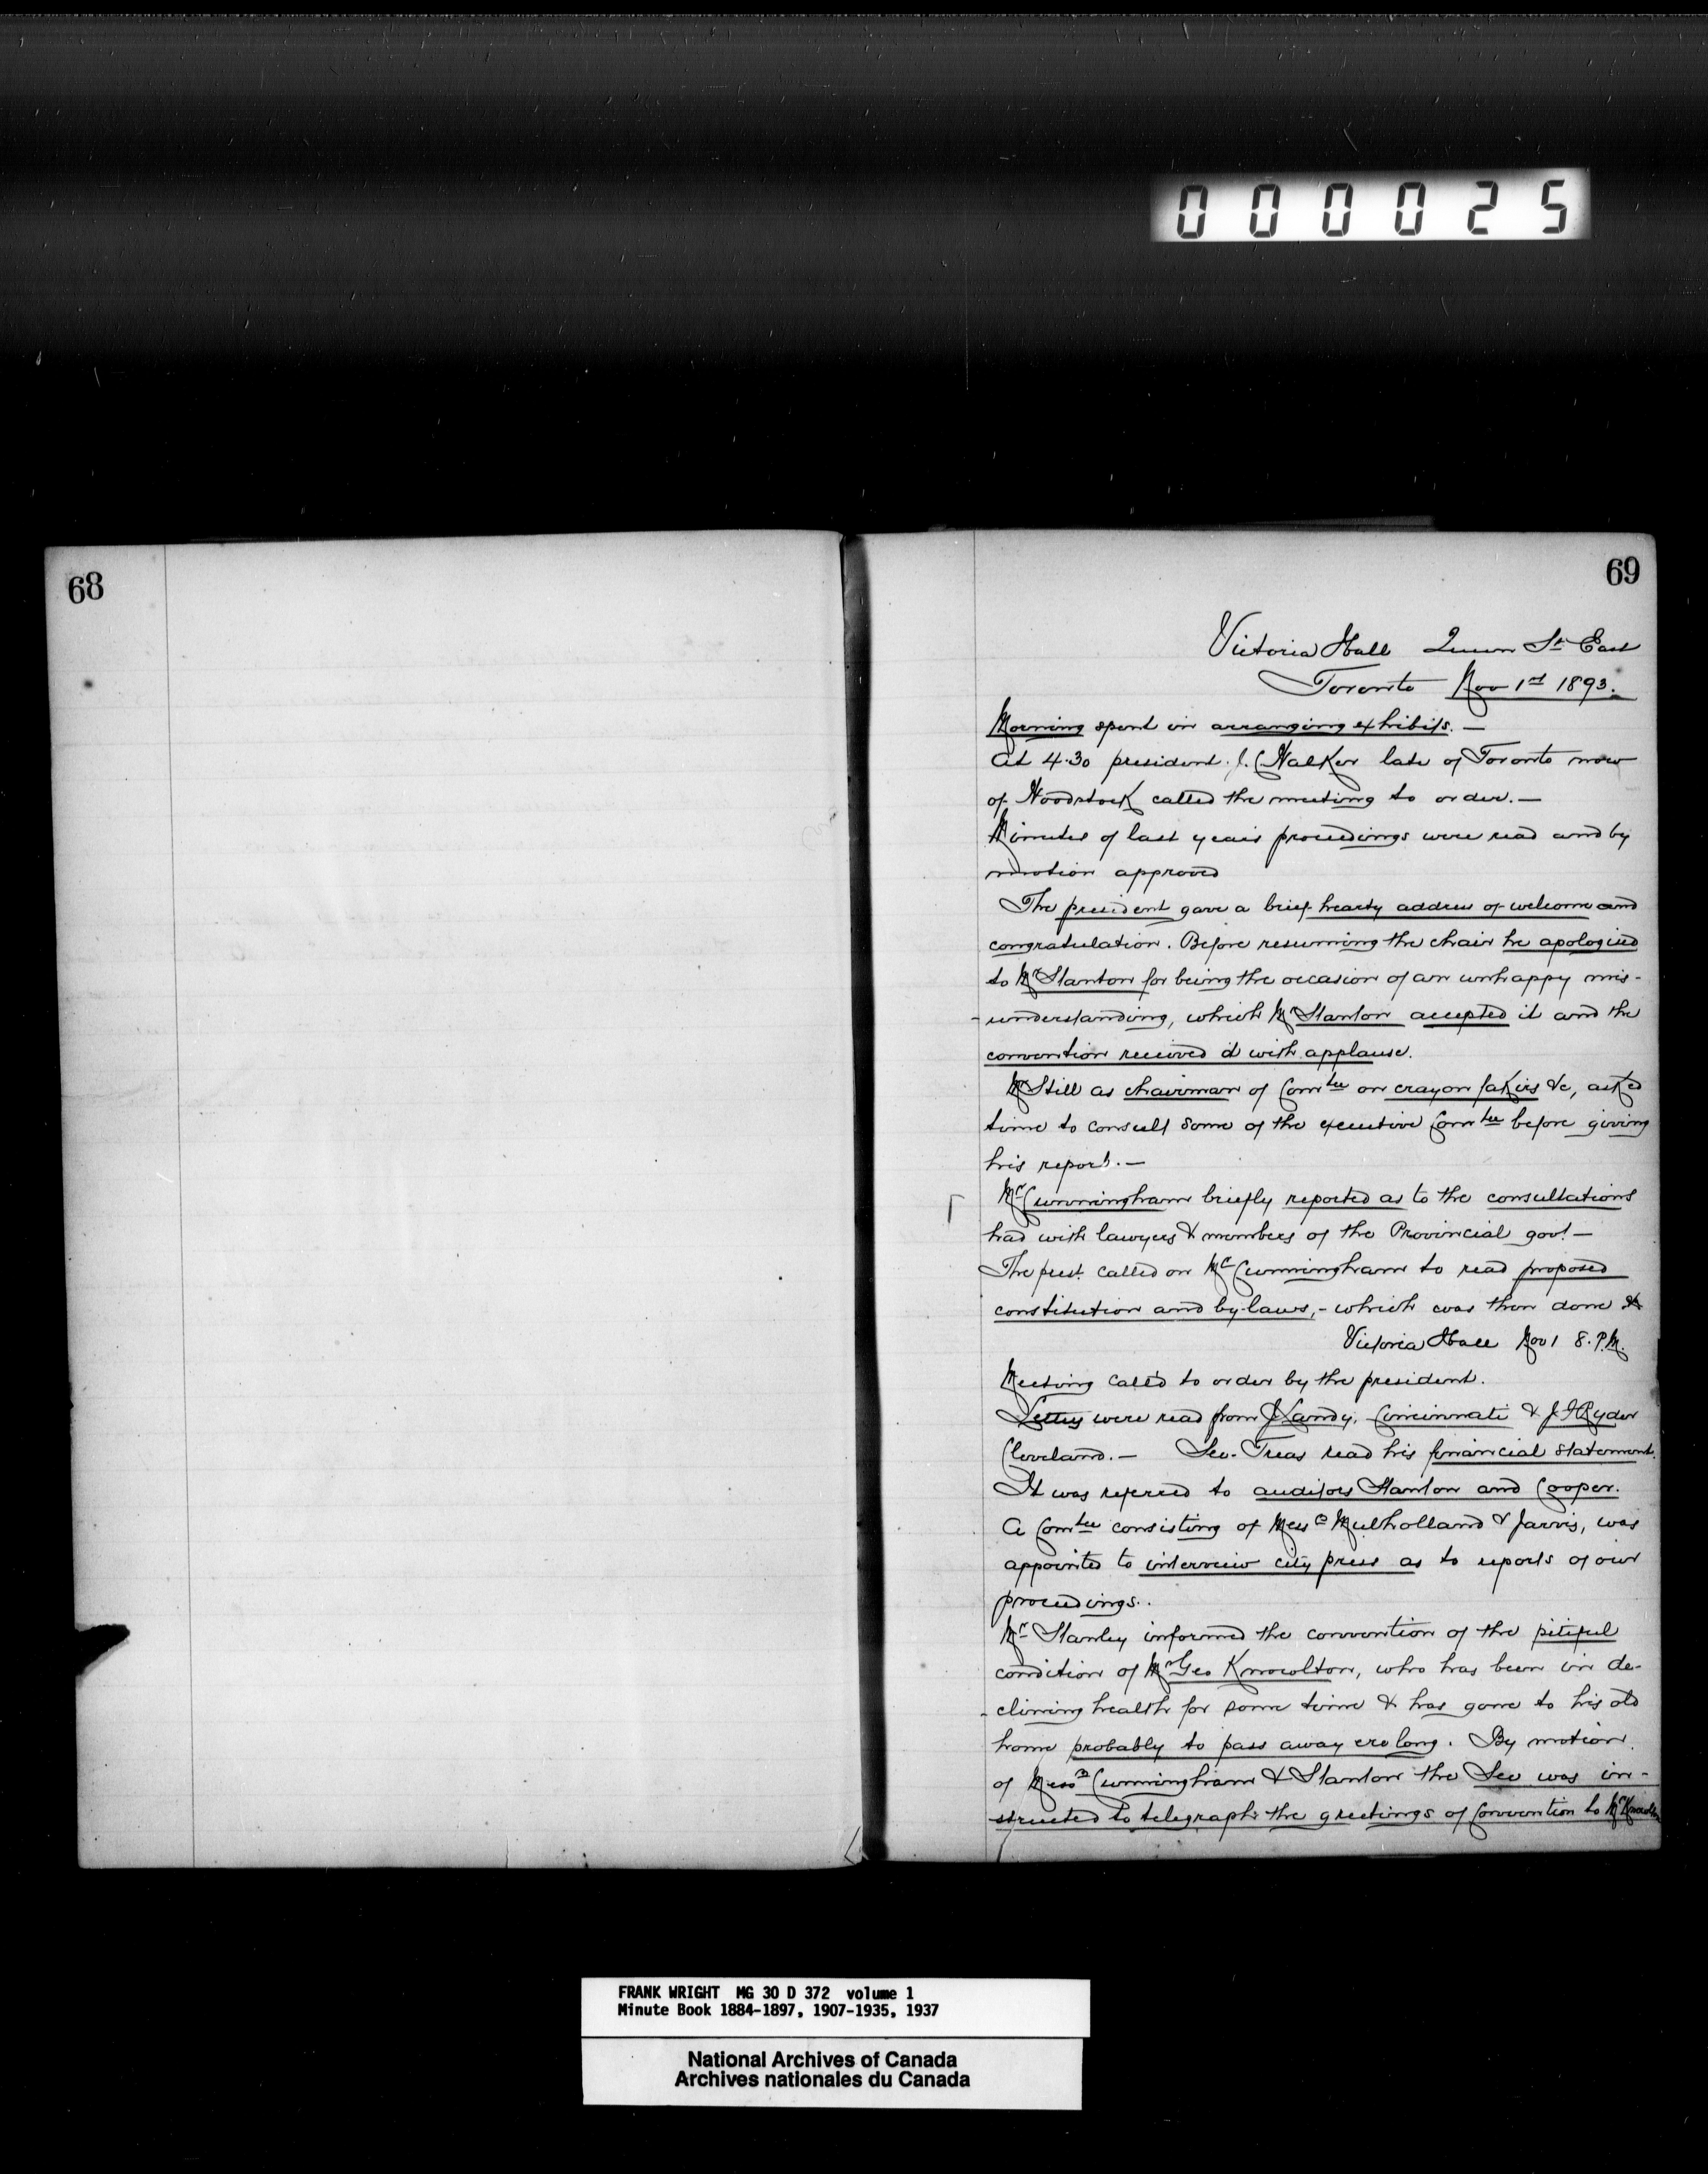 000025
68
69
Victoria Hall Queen St East
Toronto Nov 1st 1893.
Morning spent in arranging exhibits. —
At 4.30 president J. C Walker late of Toronto now
of Woodstock called the meeting to order. —
Minutes of last years proceedings were read and by
motion approved
The president gave a brief hearty address of welcome and
congratulation. Before resuming the chair he apologised
to Mr Stanton for being the occasion of an unhappy mis-
-understanding, which Mr Stanton accepted it and the
convention received it with applause.
Mr Still as chairman of Comtee on crayon fakirs &c, asked
time to consult some of the executive Comtee before giving
his report. —
Mr Cunningham briefly reported as to the consultations
had with lawyers & members of the Provincial govt —
The prest called on Mr Cunningham to read proposed
constitution and by-laws, - which was then done &
Victoria Hall Nov 1 8. P.M.
Meeting called to order by the president.
Letters were read from J Landy, Cincinnati & J F Ryder
Cleveland. — Sec-Treas read his financial statement.
It was referred to auditors Stanton and Cooper.
A Comtee consisting of Messrs Mulholland & Jarvis, was
appointed to interview city press as to reports of our
proceedings.
Mr Stanley informed the convention of the pitiful
condition of Mr Geo Knowlton, who has been in de-
-clining health for some time & has gone to his old
home probably to pass away ere long. By motion
of Messrs Cunningham & Stanton the Sec was in-
structed to telegraph the greetings of Convention to Mr Knowlton
FRANK WRIGHT MG 30 D 372 volume 1
Minute Book 1884-1897, 1907-1935, 1937
National Archives of Canada
Archives nationales du Canada